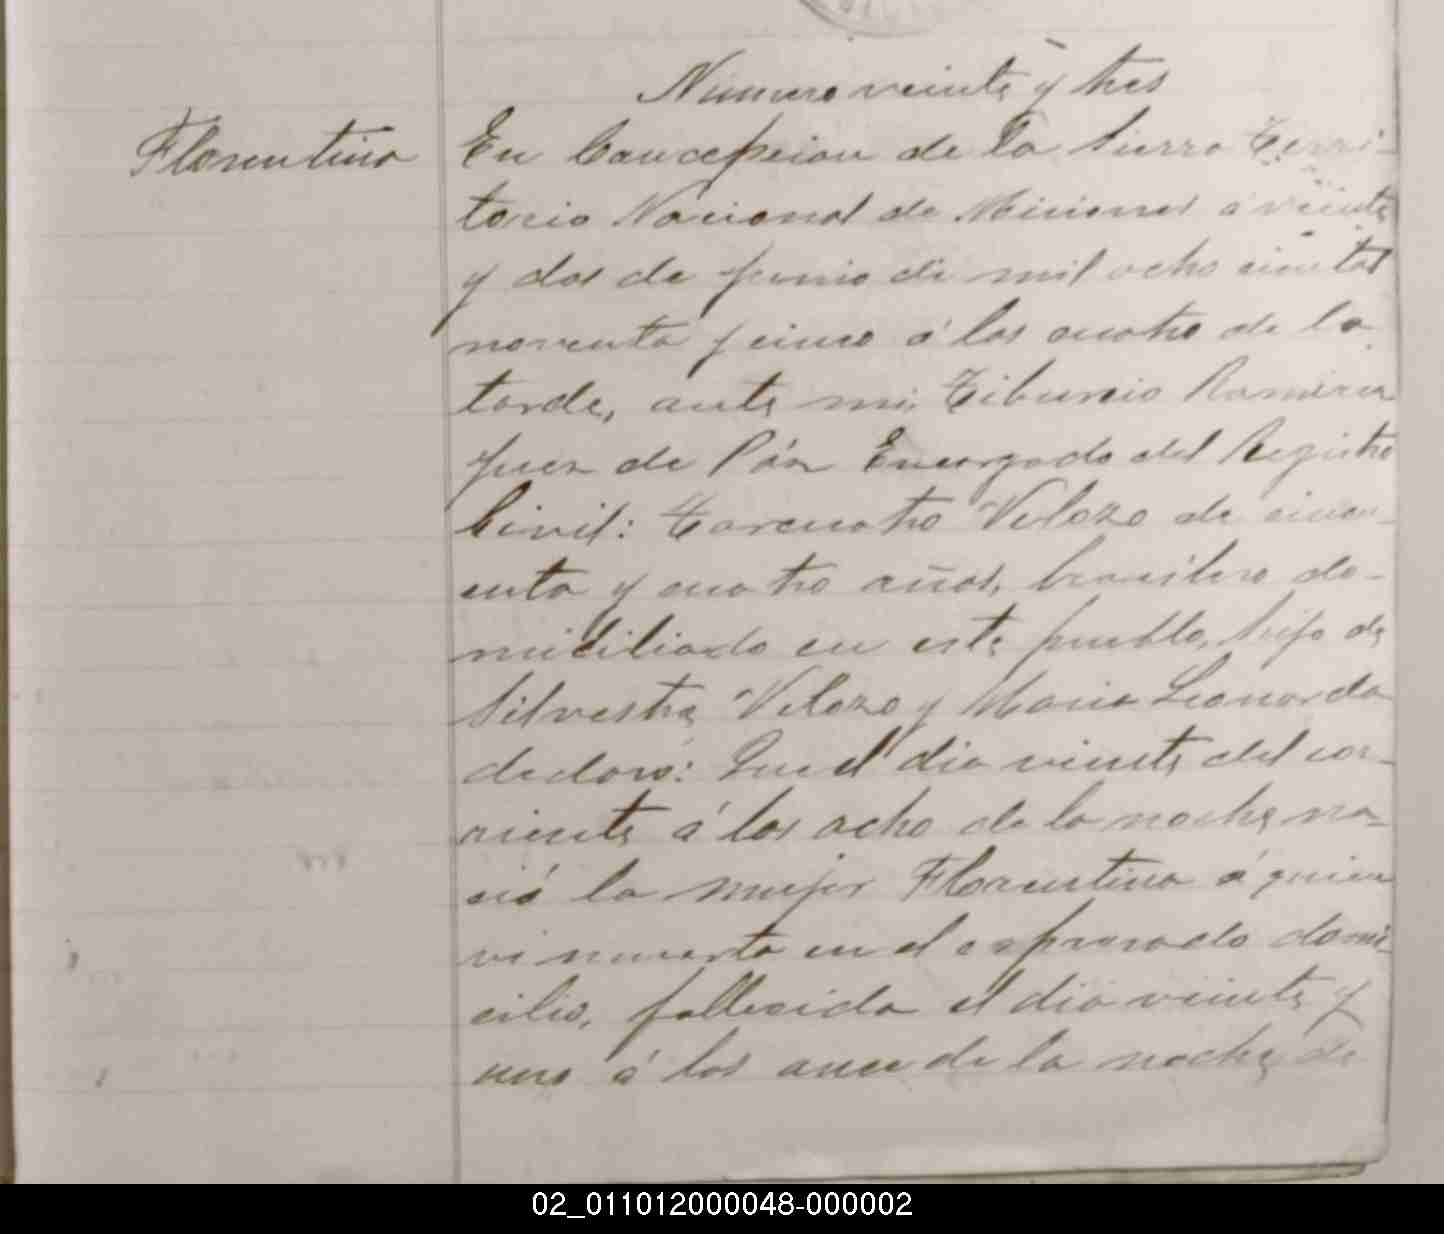 Número veinte y tres
Florentina
En Concepcion de la Sierra Terri-
torio Nacional de Misiones á veinte
y dos de junio de mil ocho cientos
noventa y cinco á las cuatro de la
tarde, ante mi, Tiburcio Ramirez
juez de Páz Encargado del Registro
Civil: Torcuatro Velozo de cincu-
enta y cuatro años, brasilero do-
miciliado en este pueblo, hijo de
Silvestre Velozo y Maria Leonarda
declaró: Que el dia veinte del cor-
riente á las ocho de la noche na-
ció la mujer Florentina á quien
vi muerta en el espresado domi-
cilio, fallecida el dia veinte y
uno á las once de la noche de
02_011012000048-000002